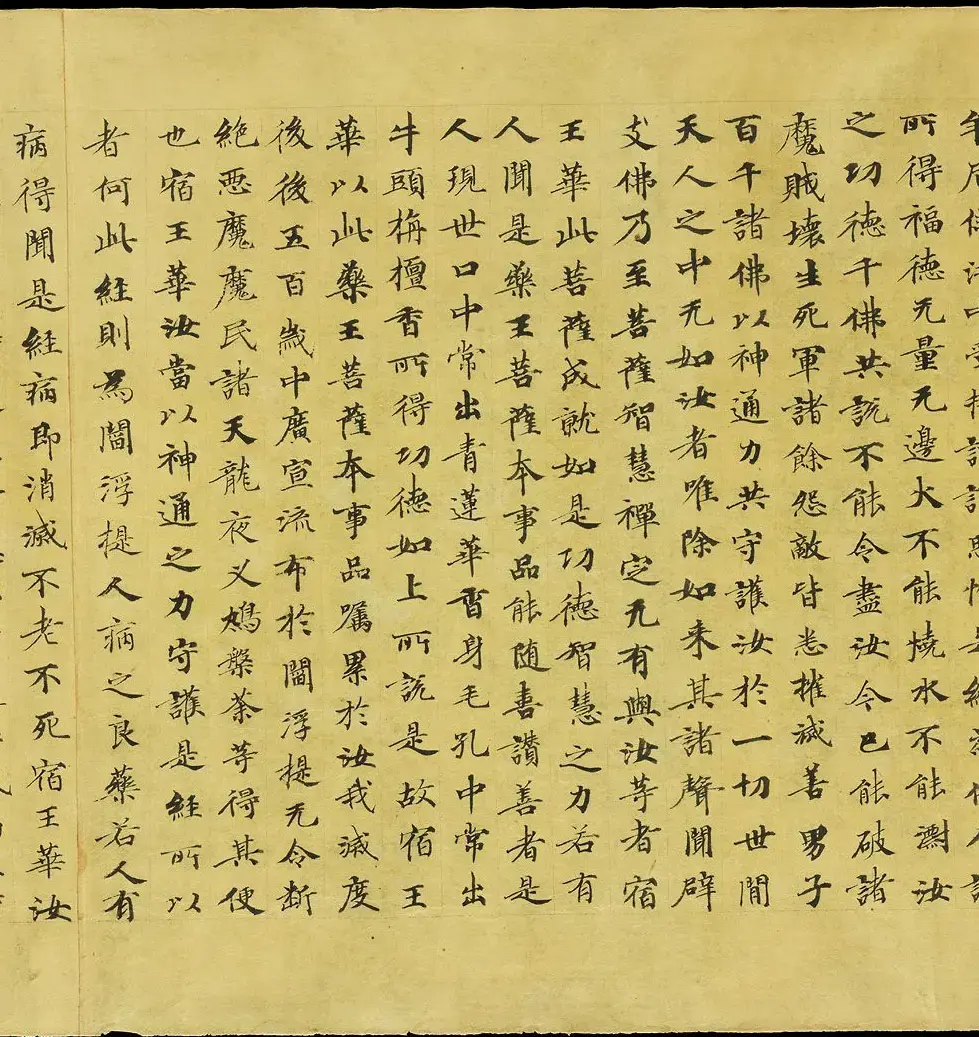 所得福德无量无邊火不能燒水不能漂汝
之功德千佛共說不能令盡汝今已能破諸
魔賊壞生死軍諸餘怨敵皆悉摧滅善男子
百千諸佛以神通力共守護汝於一切世間
天人之中无如汝者唯除如来其諸聲聞辟
支佛乃至菩薩智慧禪定无有與汝等者宿
王華此菩薩成就如是功德智慧之力若有
人聞是藥王菩薩本事品能随喜讃善者是
人現世口中常出青蓮華香身毛孔中常出
牛頭栴檀香所得功德如上所說是故宿王
華以此藥王菩薩本事品囑累於汝我滅度
後後五百歲中廣宣流布於閻浮提无令断
絶悪魔魔民諸天龍夜叉鳩槃荼等得其便
也宿王華汝當以神通之力守護是経所以
者何此経則為閻浮提人病之良藥若人有
病得聞是経病即消滅不老不死宿王華汝